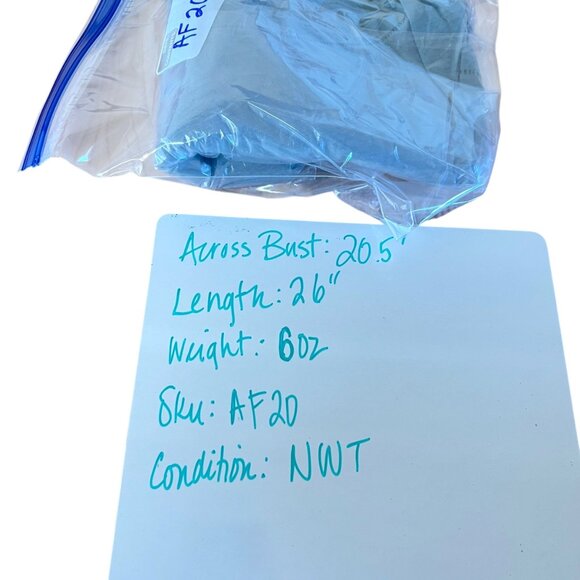 AF20
Across Bust: 20.5"
Length: 26"
Weight: 6oz
Sku: AF20
Condition: NWT